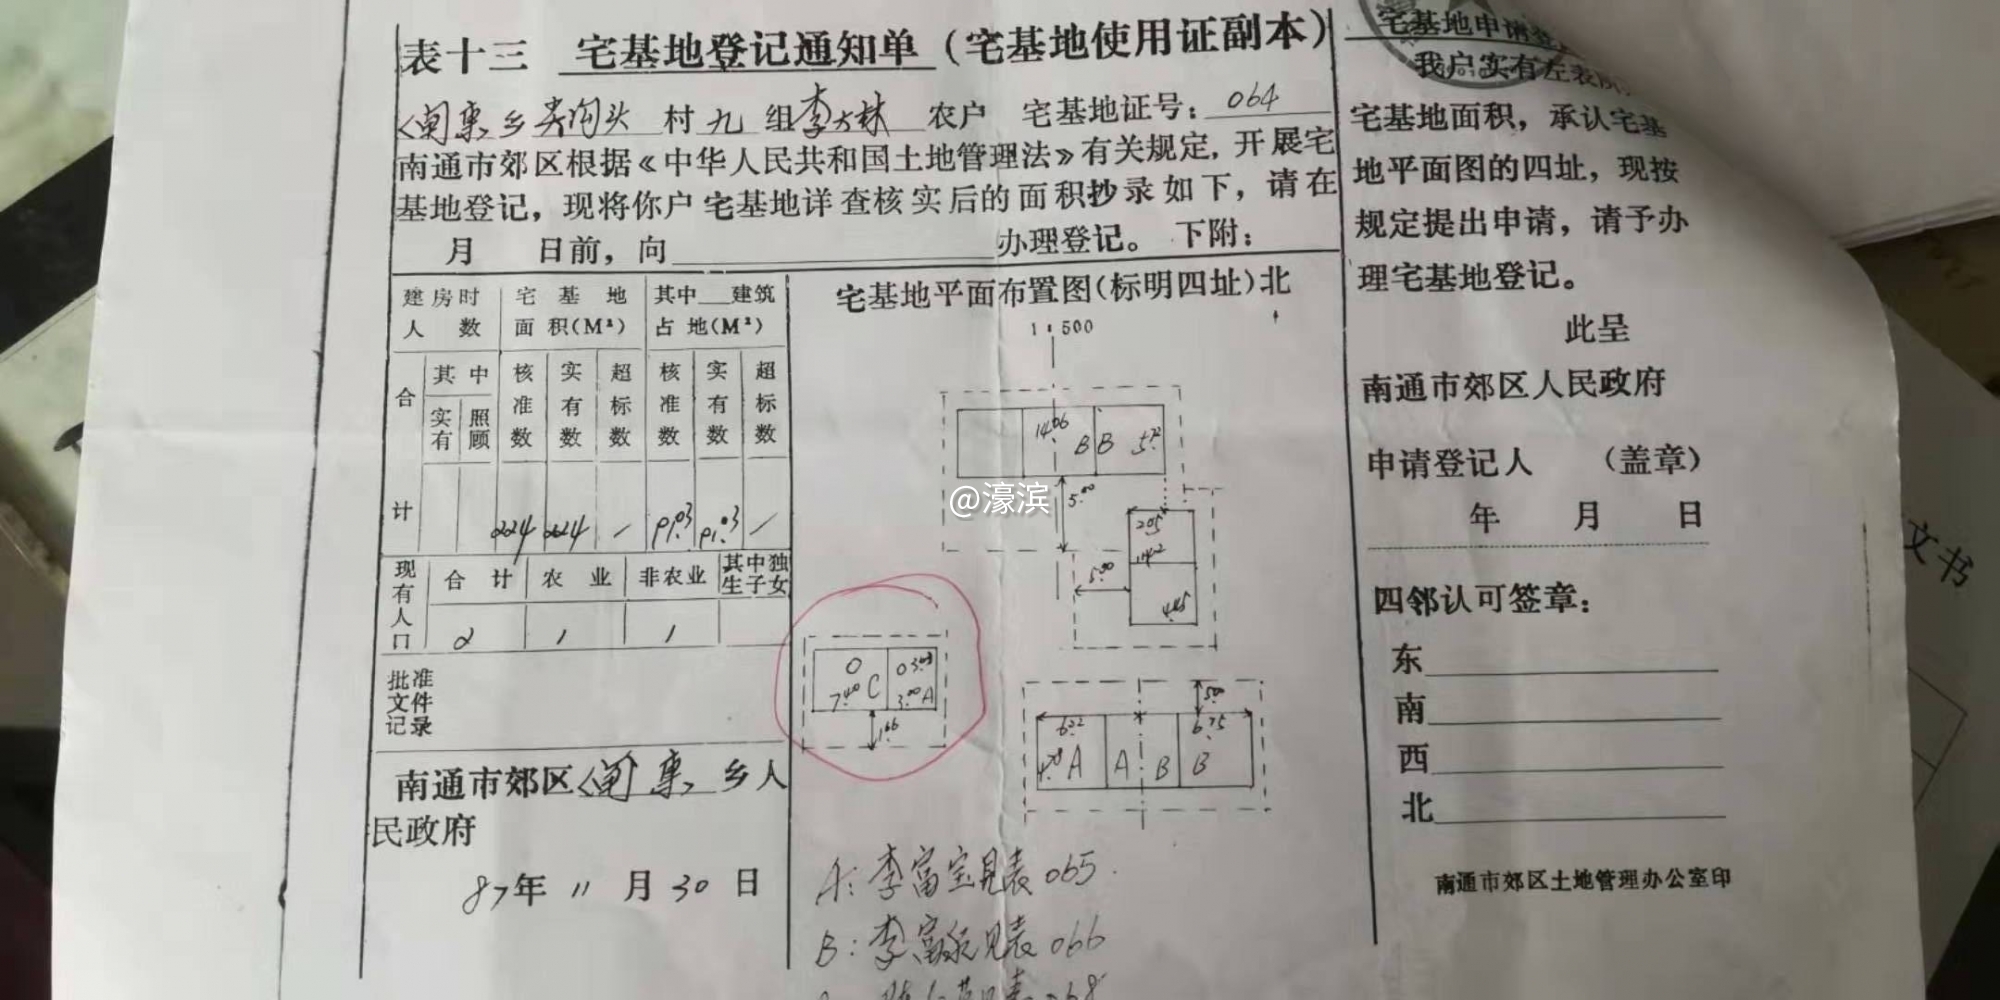 表十三 宅基地登记通知单(宅基地使用证副本)
闸东乡 村九组李大林农户 宅基地证号: 064
南通市郊区根据《中华人民共和国土地管理法》有关规定, 开展宅
基地登记, 现将你户宅基地详查核实后的面积抄录如下, 请在
月 日前, 向 办理登记。 下附:
建房时人数
宅基地面积(M²)
其中 建筑占地(M²)
合计
其中
实有
照顾
核准数
实有数
超标数
核准数
实有数
超标数
224 224 / 91.03 91.03 /
现有人口
合计
农业
非农业
其中独生子女
2 1 1
批准文件记录
南通市郊区闸东乡人
民政府
87年 11 月 30 日
宅基地平面布置图(标明四址)北
1:500
14.06 B B
5.00
5.00
4.45
0 7.40 C
3.00 A
1.66
5.00
6.22 6.75
A A B B
A: 李富宝见表 065.
B: 李富 见表 066
见表 068
@濠滨
宅基地申请
我户实有左表所
宅基地面积, 承认宅基
地平面图的四址, 现按
规定提出申请, 请予办
理宅基地登记。
此呈
南通市郊区人民政府
申请登记人 (盖章)
年 月 日
四邻认可签章:
东
南
西
北
南通市郊区土地管理办公室印
文书